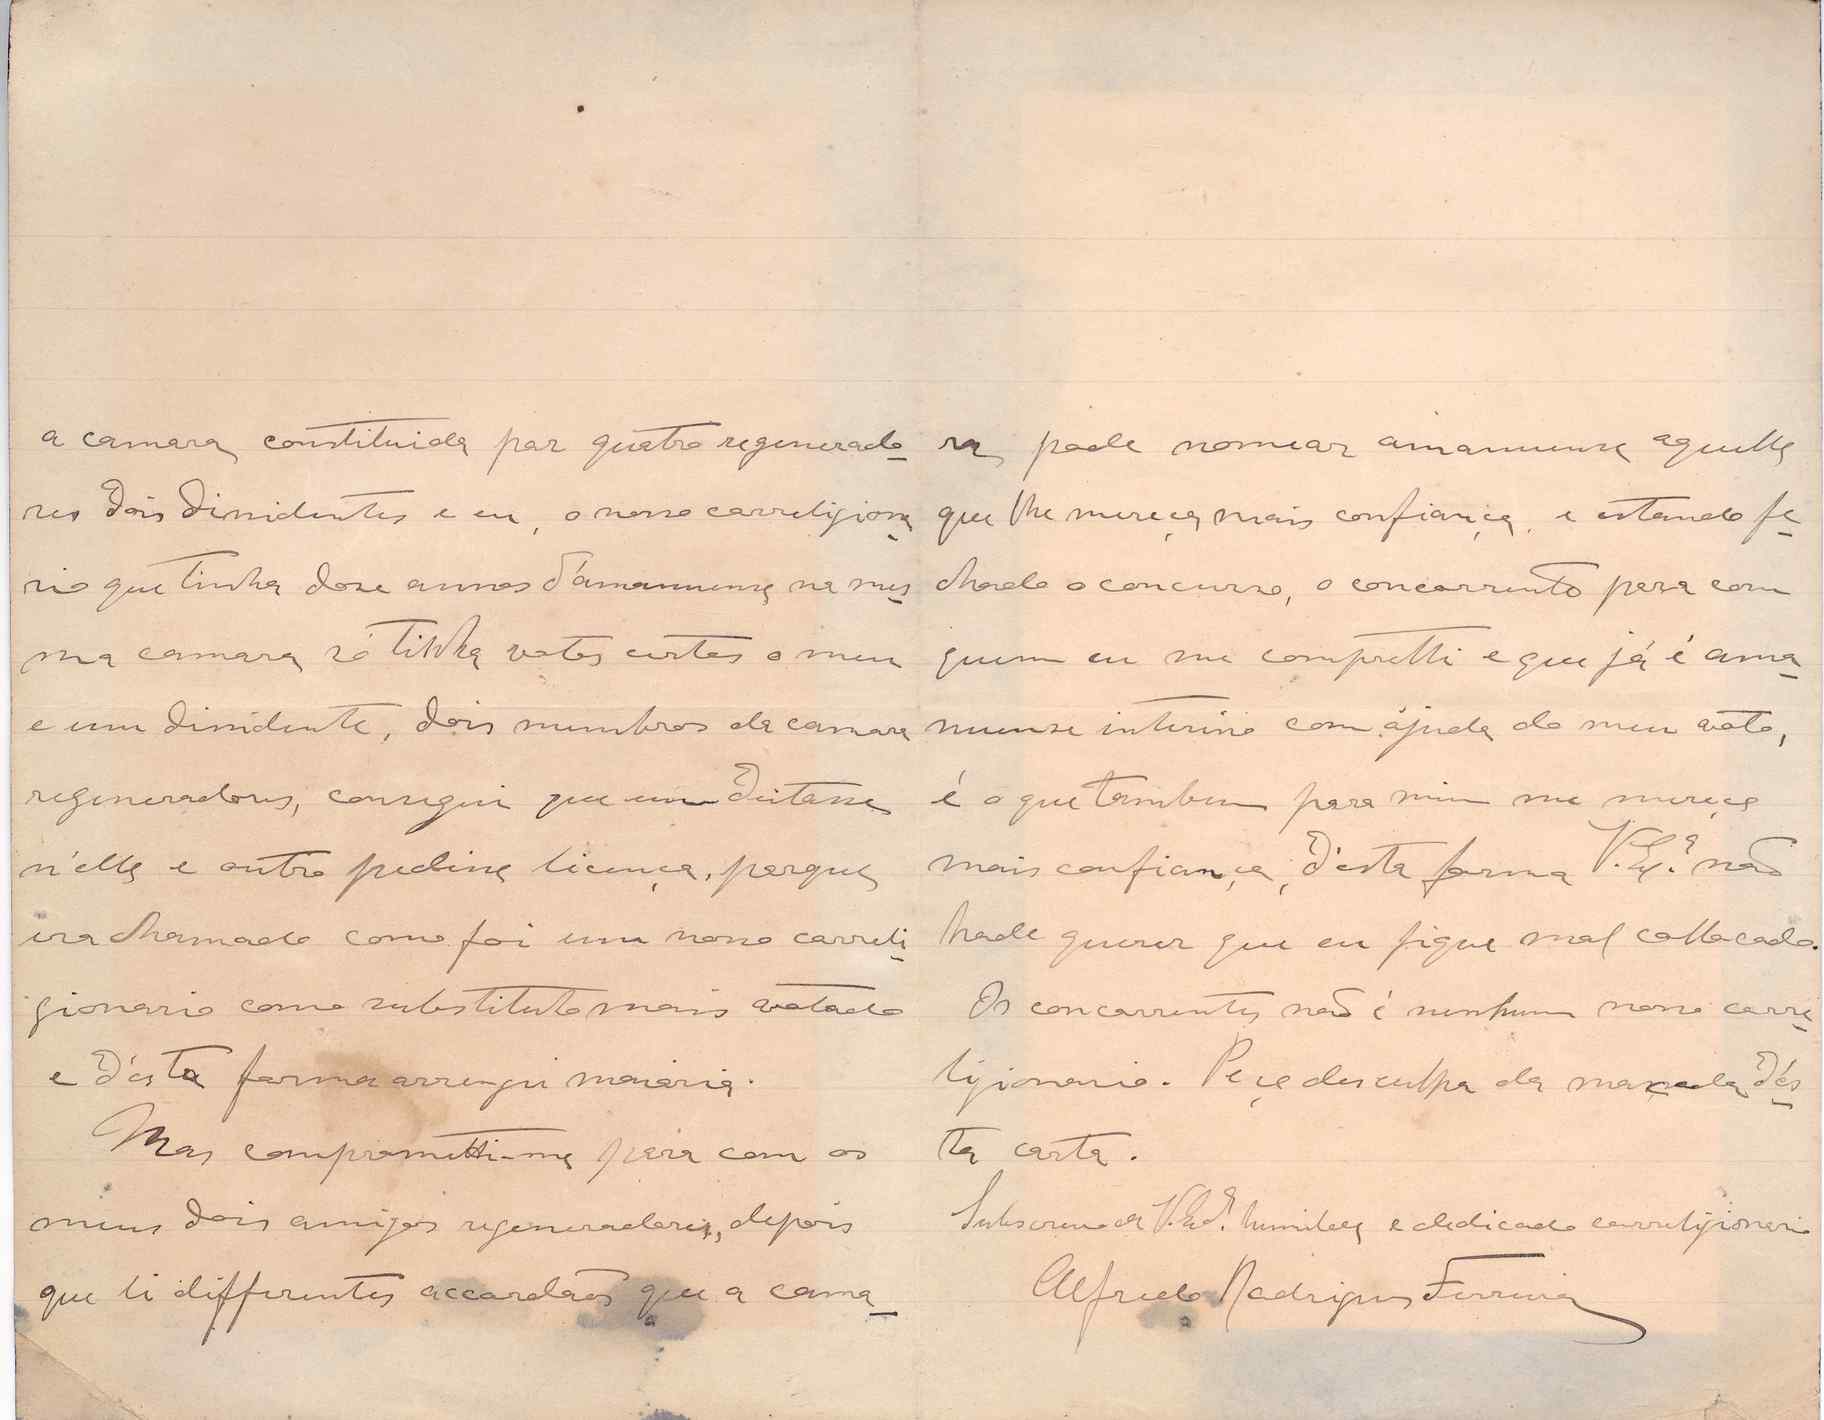 a camara constituida por quatro regenerado-
res dois dissidentes e eu, o nosso correligiona-
rio que tinha doze annos d'amanuense na mes-
ma camara só tinha votos certos o meu
e um dissidente, dois membros da camara
regeneradores, consegui que um
n'elle e outro pedisse licença, porque
era chamado como foi um nosso correli-
gionario como substituto mais votado
e d'esta forma arrengei maioria.
Mas comprometti-me para com os
meus dois amigos regeneradores, depois
que li differentes accordãos que a cama-
ra pode nomear amanuense aquelle
que lhe mereça mais confiança, e estando fe-
chado o concurso, o concorrente para com
quem eu me compretti e que já é ama-
nuense interino com ajuda do meu voto,
é o que tambem para mim me mereçe
mais confiança, d'esta forma V. Ex.ª não
hade querer que eu fique mal collocado.
Os concorrentes não é nenhum nosso corre-
ligionario. Peço desculpa da massada d'és-
ta carta.
Subscrevo de V. Ex.ª humilde e dedicado correligionario
Alfredo Rodrigues Ferreira